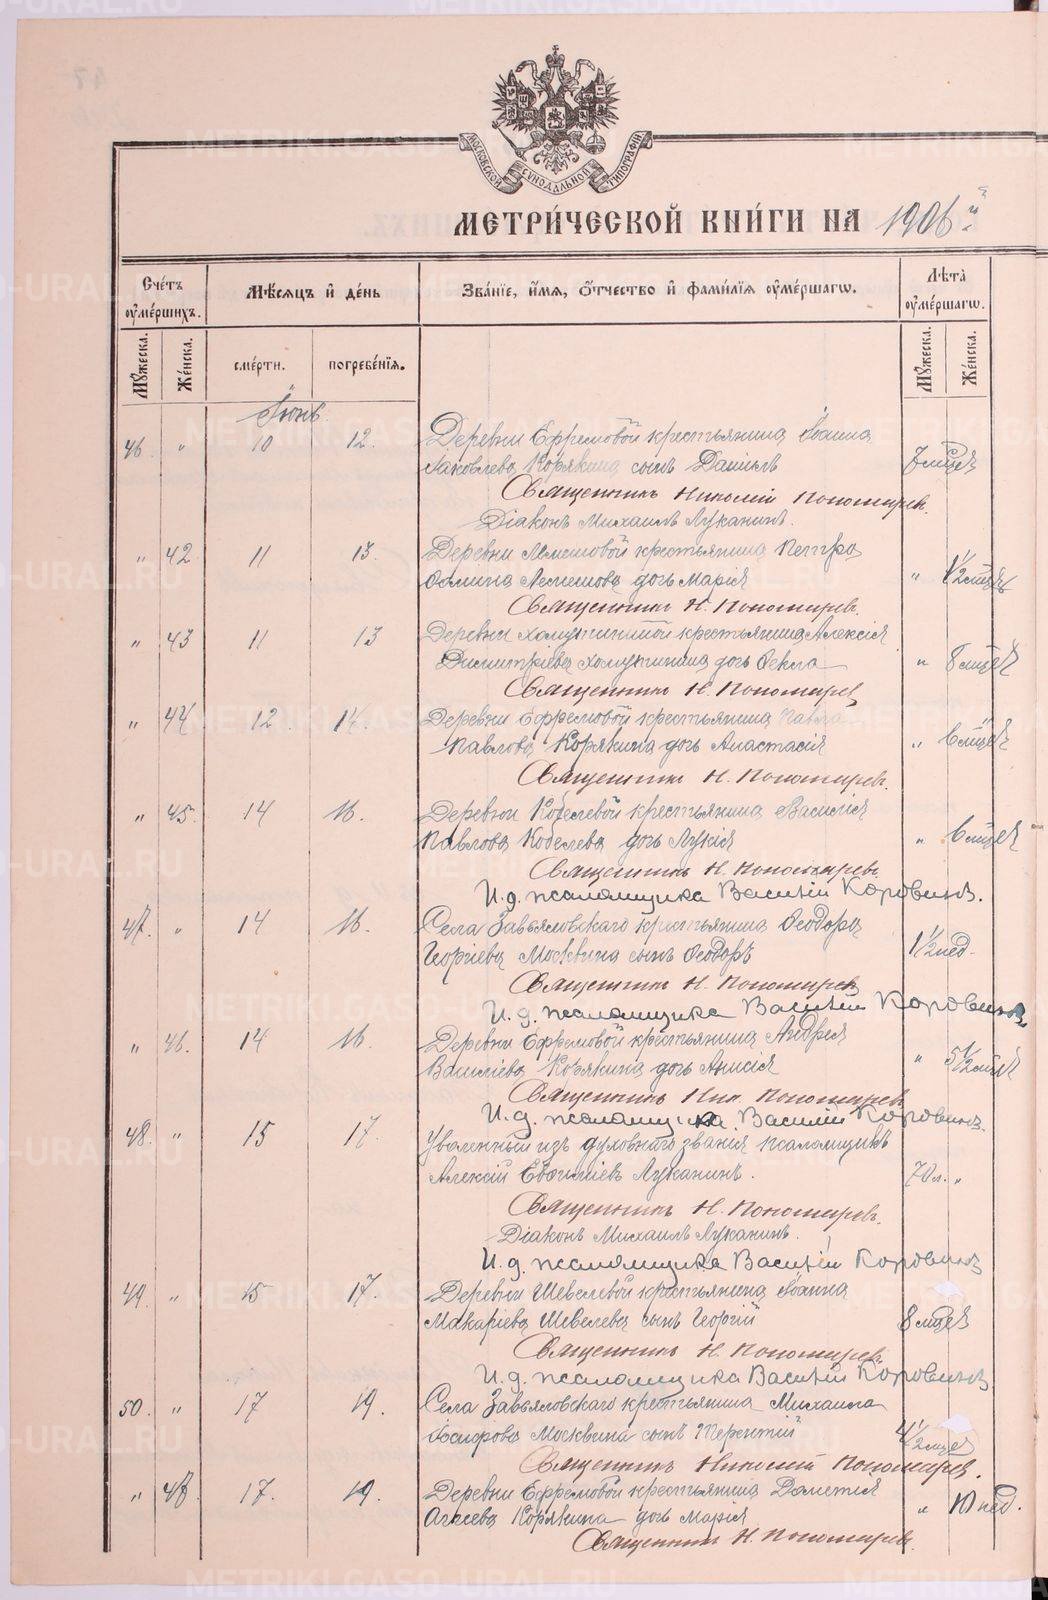 МОСКОВСКОЙ СѴНОДАЛЬНОЙ ТИПОГРАФІИ
МЕТРИ́ЧЕСКОЙ КНИ́ГИ НА 1906й
Сче́тъ ѹ҆ме́ршихъ.
Мѣ́сяцъ и҆ де́нь
Зва́нїе, и҆́мѧ, ѻ҆́тчество и҆ фами́лїѧ ѹ҆ме́ршагѡ.
Лѣта̀ ѹ҆ме́ршагѡ.
Мꙋ́жеска.
Же́нска.
сме́рти.
погребе́нїѧ.
Мꙋ́жеска.
Же́нска.
Іюнь
46. " 10 12. Деревни Ефремовой крестьянина Іоанна
Яковлева Корякина сынъ Даніилъ 7 мцев
Священникъ Николай Пономаревъ.
Діаконъ Михаилъ Луканинъ.
" 42. 11 13. Деревни крестьянина Петра
дочь Марія " 1 1/2 мцев
Священникъ Н. Пономаревъ.
" 43 11 13 Деревни крестьянина Алексія
Димитріева дочь Ѳекла " 8 мцев
Священникъ Н. Пономаревъ
" 44 12. 14. Деревни Ефремовой крестьянина Павла
Павлова Корякина дочь Анастасія " 6 мцев
Священникъ Н. Пономаревъ.
" 45. 14 16. Деревни Кобелевой крестьянина Василія
Павлова Кобелева дочь Лукія " 6 мцев
Священникъ Н. Пономаревъ
И. д. псаломщика Василій Коровинъ.
47. " 14 16. Села Завьяловскаго крестьянина Ѳеодора
Георгіева Москвина сынъ Ѳеодоръ 1 1/2 нед.
Священникъ Н. Пономаревъ
И. д. псаломщика Василій Коровинъ.
" 46. 14 16 Деревни Ефремовой крестьянина Андрея
Василіева Корякина дочь Анисія " 5 1/2 мцев
Священникъ Ник. Пономаревъ
И. д. псаломщика Василій Коровинъ.
48. " 15 17. Уволенный изъ духовнаго званія псаломщикъ
Алексій Евѳиміевъ Луканинъ. 70 л. "
Священникъ Н. Пономаревъ.
Діаконъ Михаилъ Луканинъ.
И. д. псаломщика Василій Коровинъ
49. " 15 17. Деревни Шевелевой крестьянина Іоанна
Макаріева Шевелева сынъ Георгій 8 мцев
Священникъ Н. Пономаревъ
И. д. псаломщика Василій Коровинъ
50. " 17 19. Села Завьяловскаго крестьянина Михаила
Іосифова Москвина сынъ Терентій 4 1/2 мцев
Священникъ Николай Пономаревъ.
" 47. 17. 19. Деревни Ефремовой крестьянина Дометія
Агѣева Корякина дочь Марія " 10 нед.
Священникъ Н. Пономаревъ.
METRIKI.GASO-URAL.RU